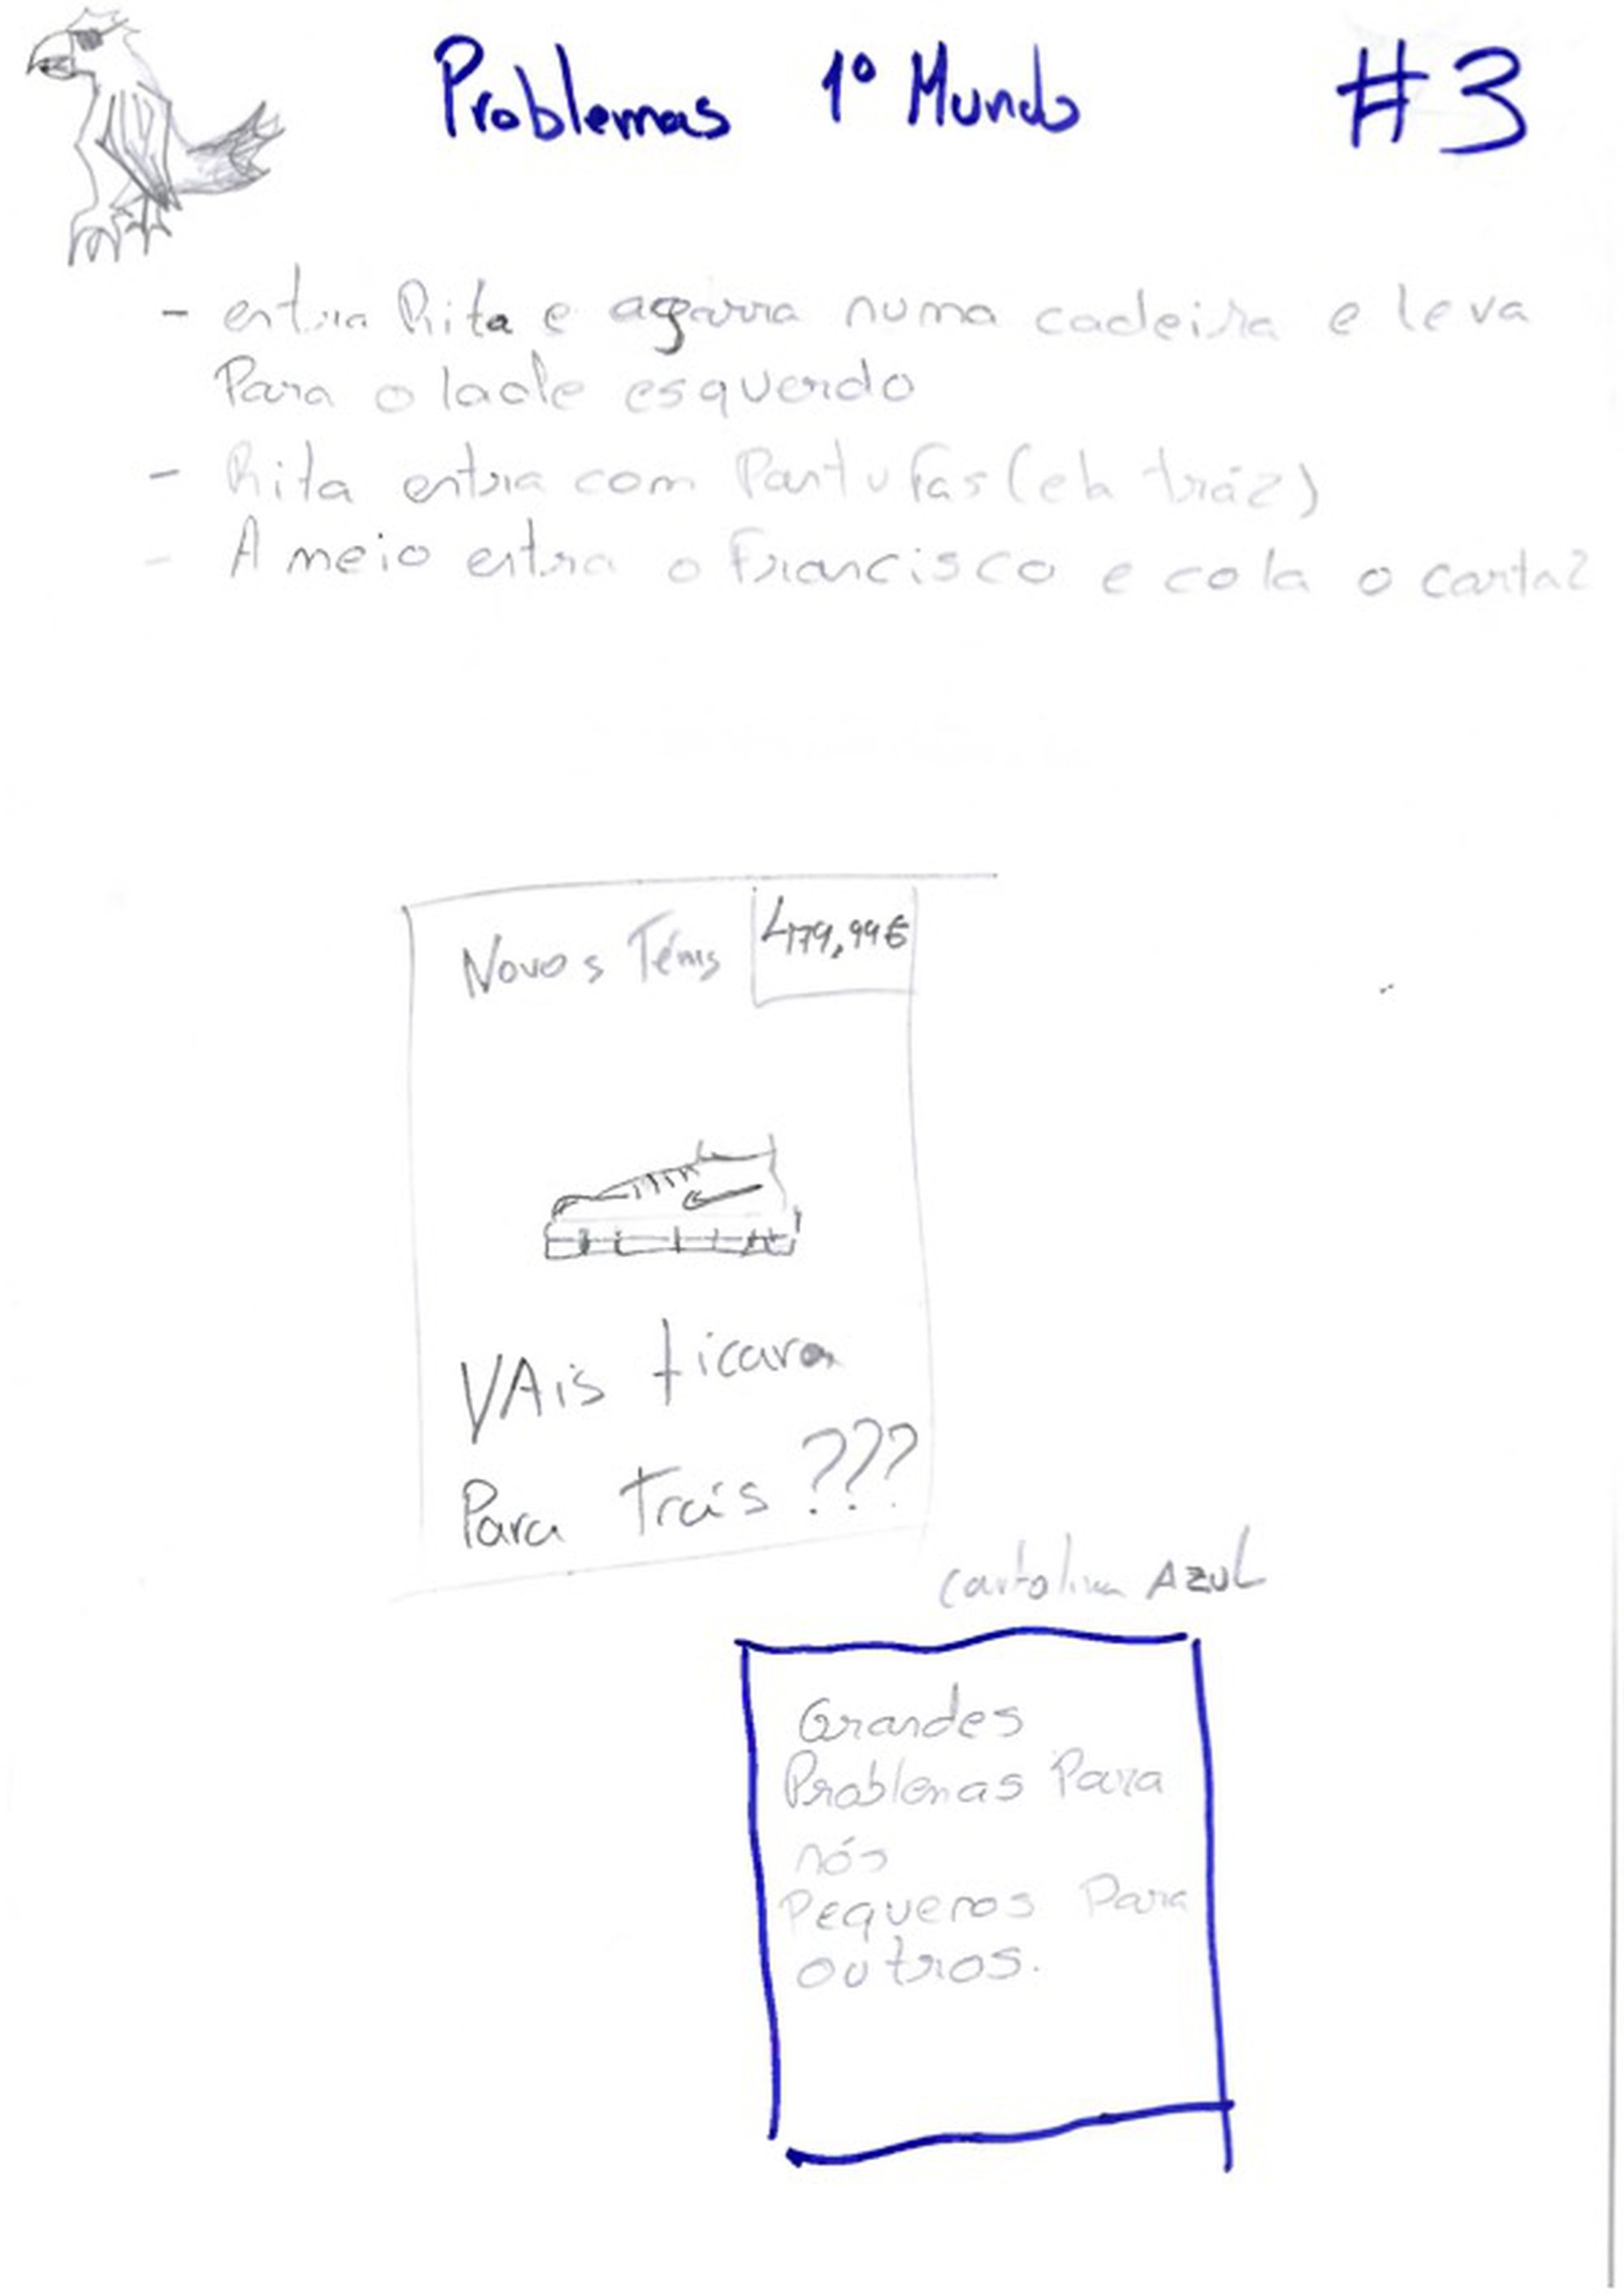 Problemas 1º Mundo #3
- entra Rita e agarra numa cadeira e leva
Para o lade esquerdo
- Rita entra com Pantufas (ela tráz)
- A meio entra o Francisco e cola o cartaz
Novos Ténis 479,99€
VAis ficar
Para Trás ???
cartolina AZUL
Grandes
Problemas Para
nós
Pequenos Para
outros.